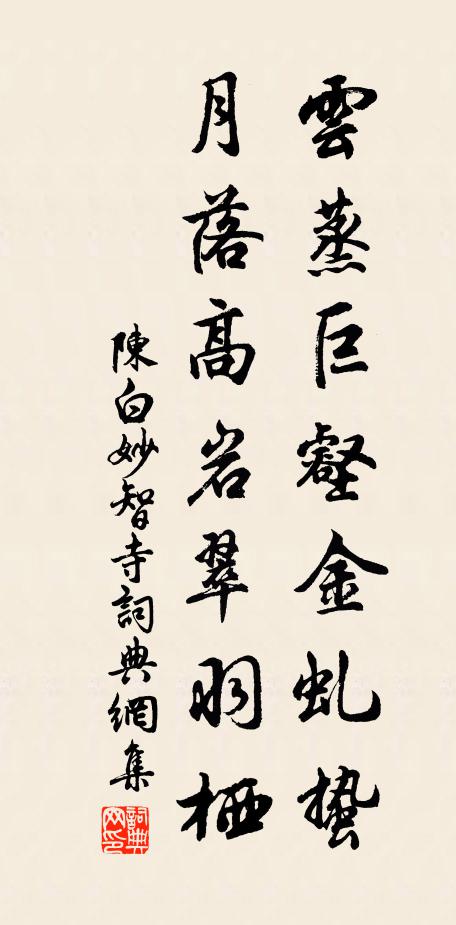 雲蒸巨壑金虬蟄
月落高岩翠羽栖
陳白妙智寺詞典網集
詞典網印